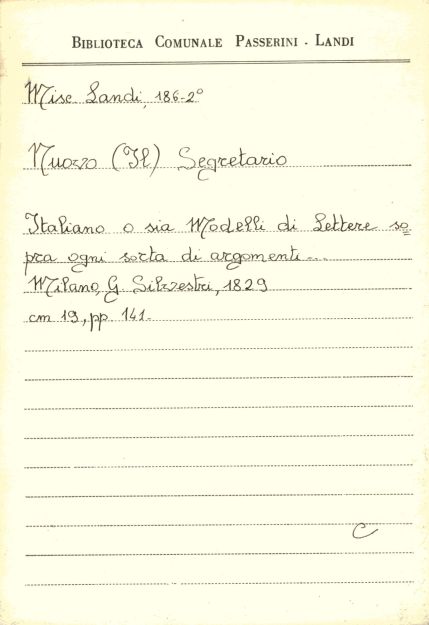 BIBLIOTECA COMUNALE PASSERINI - LANDI
Misc. Landi, 186-2°
Nuovo (Il) Segretario
Italiano o sia Modelli di Lettere so=
pra ogni sorta di argomenti...
Milano, G. Silvestri, 1829
cm 19, pp. 141.
C